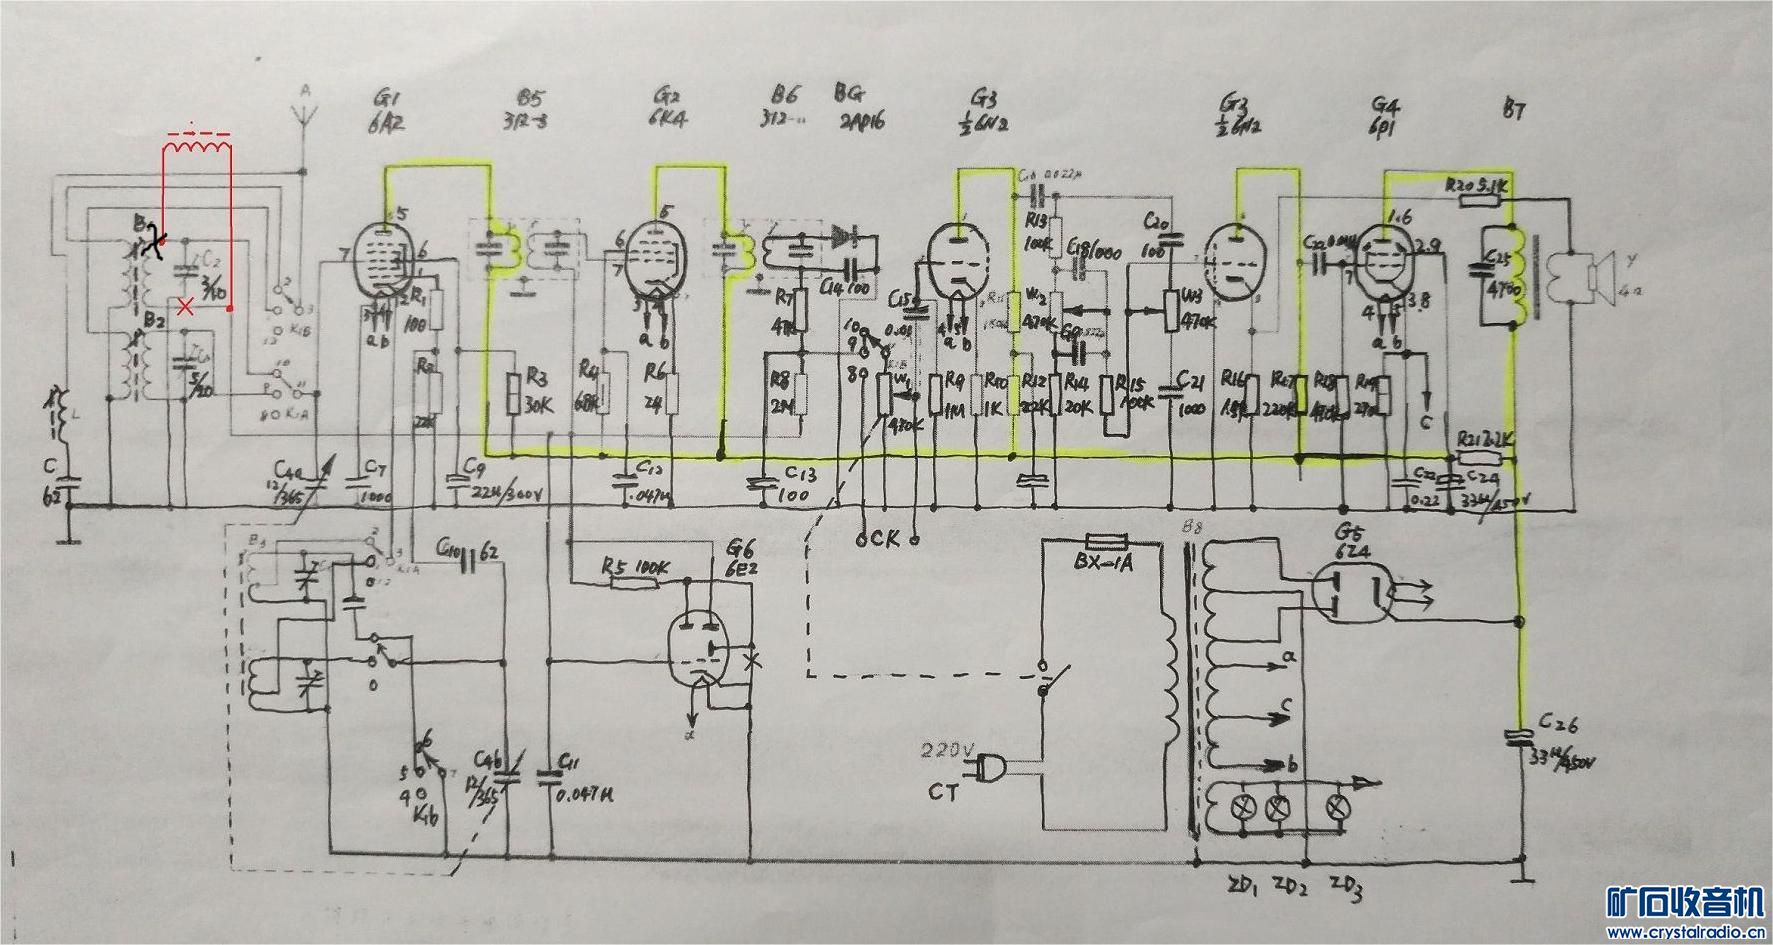 A
G1
6A2
B5
312-3
G2
6K4
B6
312-..
BG
2AP16
G3
½6N2
G3
½6N2
G4
6P1
B7
R20 5.1K
C20
100
C25
4700
Y
4Ω
B2
C2
3/10
5/20
K1B
K1A
R1
100
R2
22K
R3
30K
R4
68K
R6
24
R7
47K
R8
2M
C14 100
C15
0.01
W1
470K
R9
1M
R10
1K
R12
22K
R13
100K
W2
470K
R14
20K
R15
100K
W3
470K
C21
1000
R16
1.5K
R17
220K
R18
470K
R19
270
R21 2.2K
a b
a b
a b
a b
c
L
C
62
C4a
12/365
C7
1000
C9
22μ/300V
C12
.047μ
C13
100
C22
0.22
C24
33μ/450V
CK
B3
K1A
C10
62
R5 100K
G6
6E2
BX-1A
B8
G5
6Z4
a
c
b
220V
CT
C26
33μ/450V
6
5
4
7
K1b
C4b
12/365
C11
0.047μ
ZD1
ZD2
ZD3
矿石收音机
www.crystalradio.cn